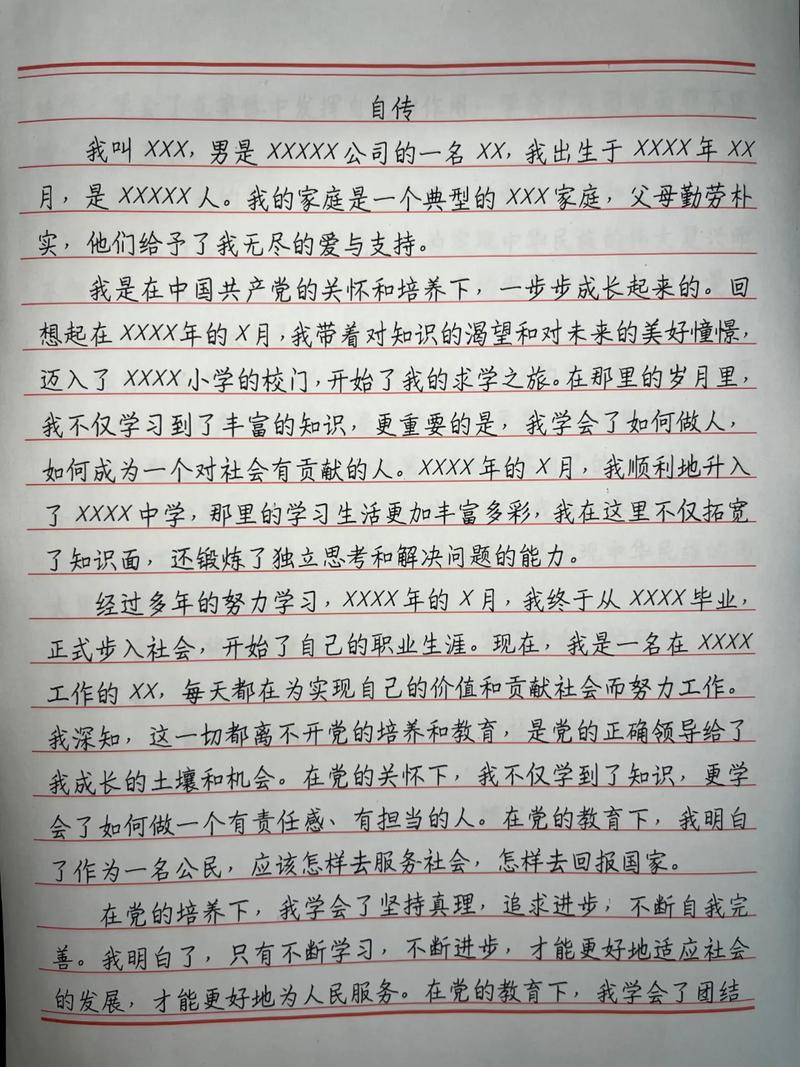 自传
我叫 XXX，男是 XXXXX 公司的一名 XX，我出生于 XXXX 年 XX
月，是 XXXXX 人。我的家庭是一个典型的 XXX 家庭，父母勤劳朴
实，他们给予了我无尽的爱与支持。
我是在中国共产党的关怀和培养下，一步步成长起来的。回
想起在 XXXX 年的 X 月，我带着对知识的渴望和对未来的美好憧憬，
迈入了 XXXX 小学的校门，开始了我的求学之旅。在那里的岁月里，
我不仅学习到了丰富的知识，更重要的是，我学会了如何做人，
如何成为一个对社会有贡献的人。XXXX 年的 X 月，我顺利地升入
了 XXXX 中学，那里的学习生活更加丰富多彩，我在这里不仅拓宽
了知识面，还锻炼了独立思考和解决问题的能力。
经过多年的努力学习，XXXX 年的 X 月，我终于从 XXXX 毕业，
正式步入社会，开始了自己的职业生涯。现在，我是一名在 XXXX
工作的 XX，每天都在为实现自己的价值和贡献社会而努力工作。
我深知，这一切都离不开党的培养和教育，是党的正确领导给了
我成长的土壤和机会。在党的关怀下，我不仅学到了知识，更学
会了如何做一个有责任感、有担当的人。在党的教育下，我明白
了作为一名公民，应该怎样去服务社会，怎样去回报国家。
在党的培养下，我学会了坚持真理，追求进步，不断自我完
善。我明白了，只有不断学习，不断进步，才能更好地适应社会
的发展，才能更好地为人民服务。在党的教育下，我学会了团结